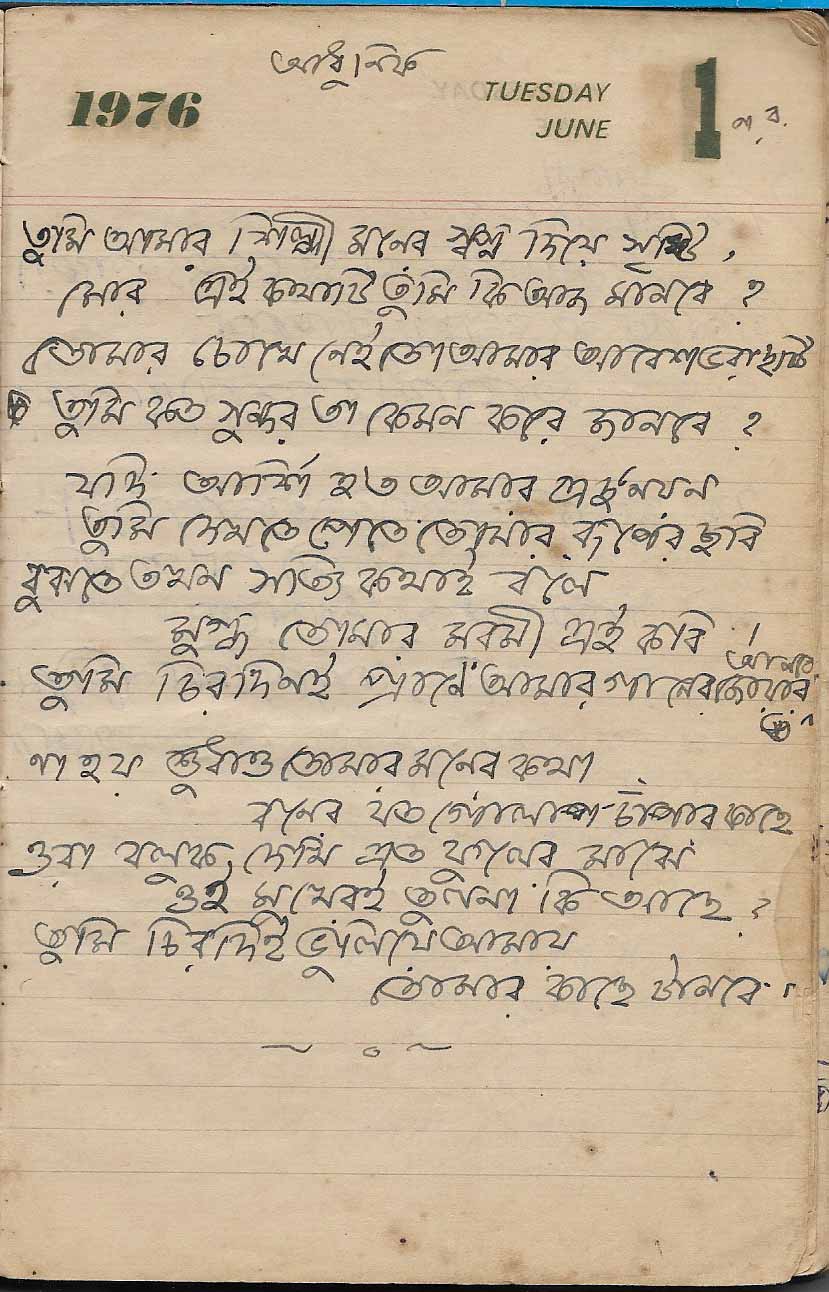 আধুনিক
1976
TUESDAY
JUNE
1
ন.ব.
তুমি আমার শিল্পী মনের স্বপ্ন দিয়ে সৃষ্টি,
মোর এই কথাটি তুমি কি আজ মানবে ?
তোমার চোখে নেই তো আমার আবেশ ভরা দৃষ্টি
তুমি কত সুন্দর তা কেমন করে জানবে ?
যদি আর্শি হত আমার এ দুনয়ন
তুমি দেখতে পেতে তোমার রূপের ছবি
বুঝতে তখন সত্যি কথাই বলে
মুগ্ধ তোমার মরমী এই কবি !
তুমি চিরদিনই প্রাণে আমার গানের জোয়ার আনবে
না হয় শুধাও তোমার মনের কথা
বনের যত গোলাপ চাঁপার কাছে
ওরা বলুক দেখি এত ফুলের মাঝে
ওই মুখেরই তুলনা কি আছে ?
তুমি চিরদিনই ভুলিয়ে আমায়
তোমার কাছে টানবে ।